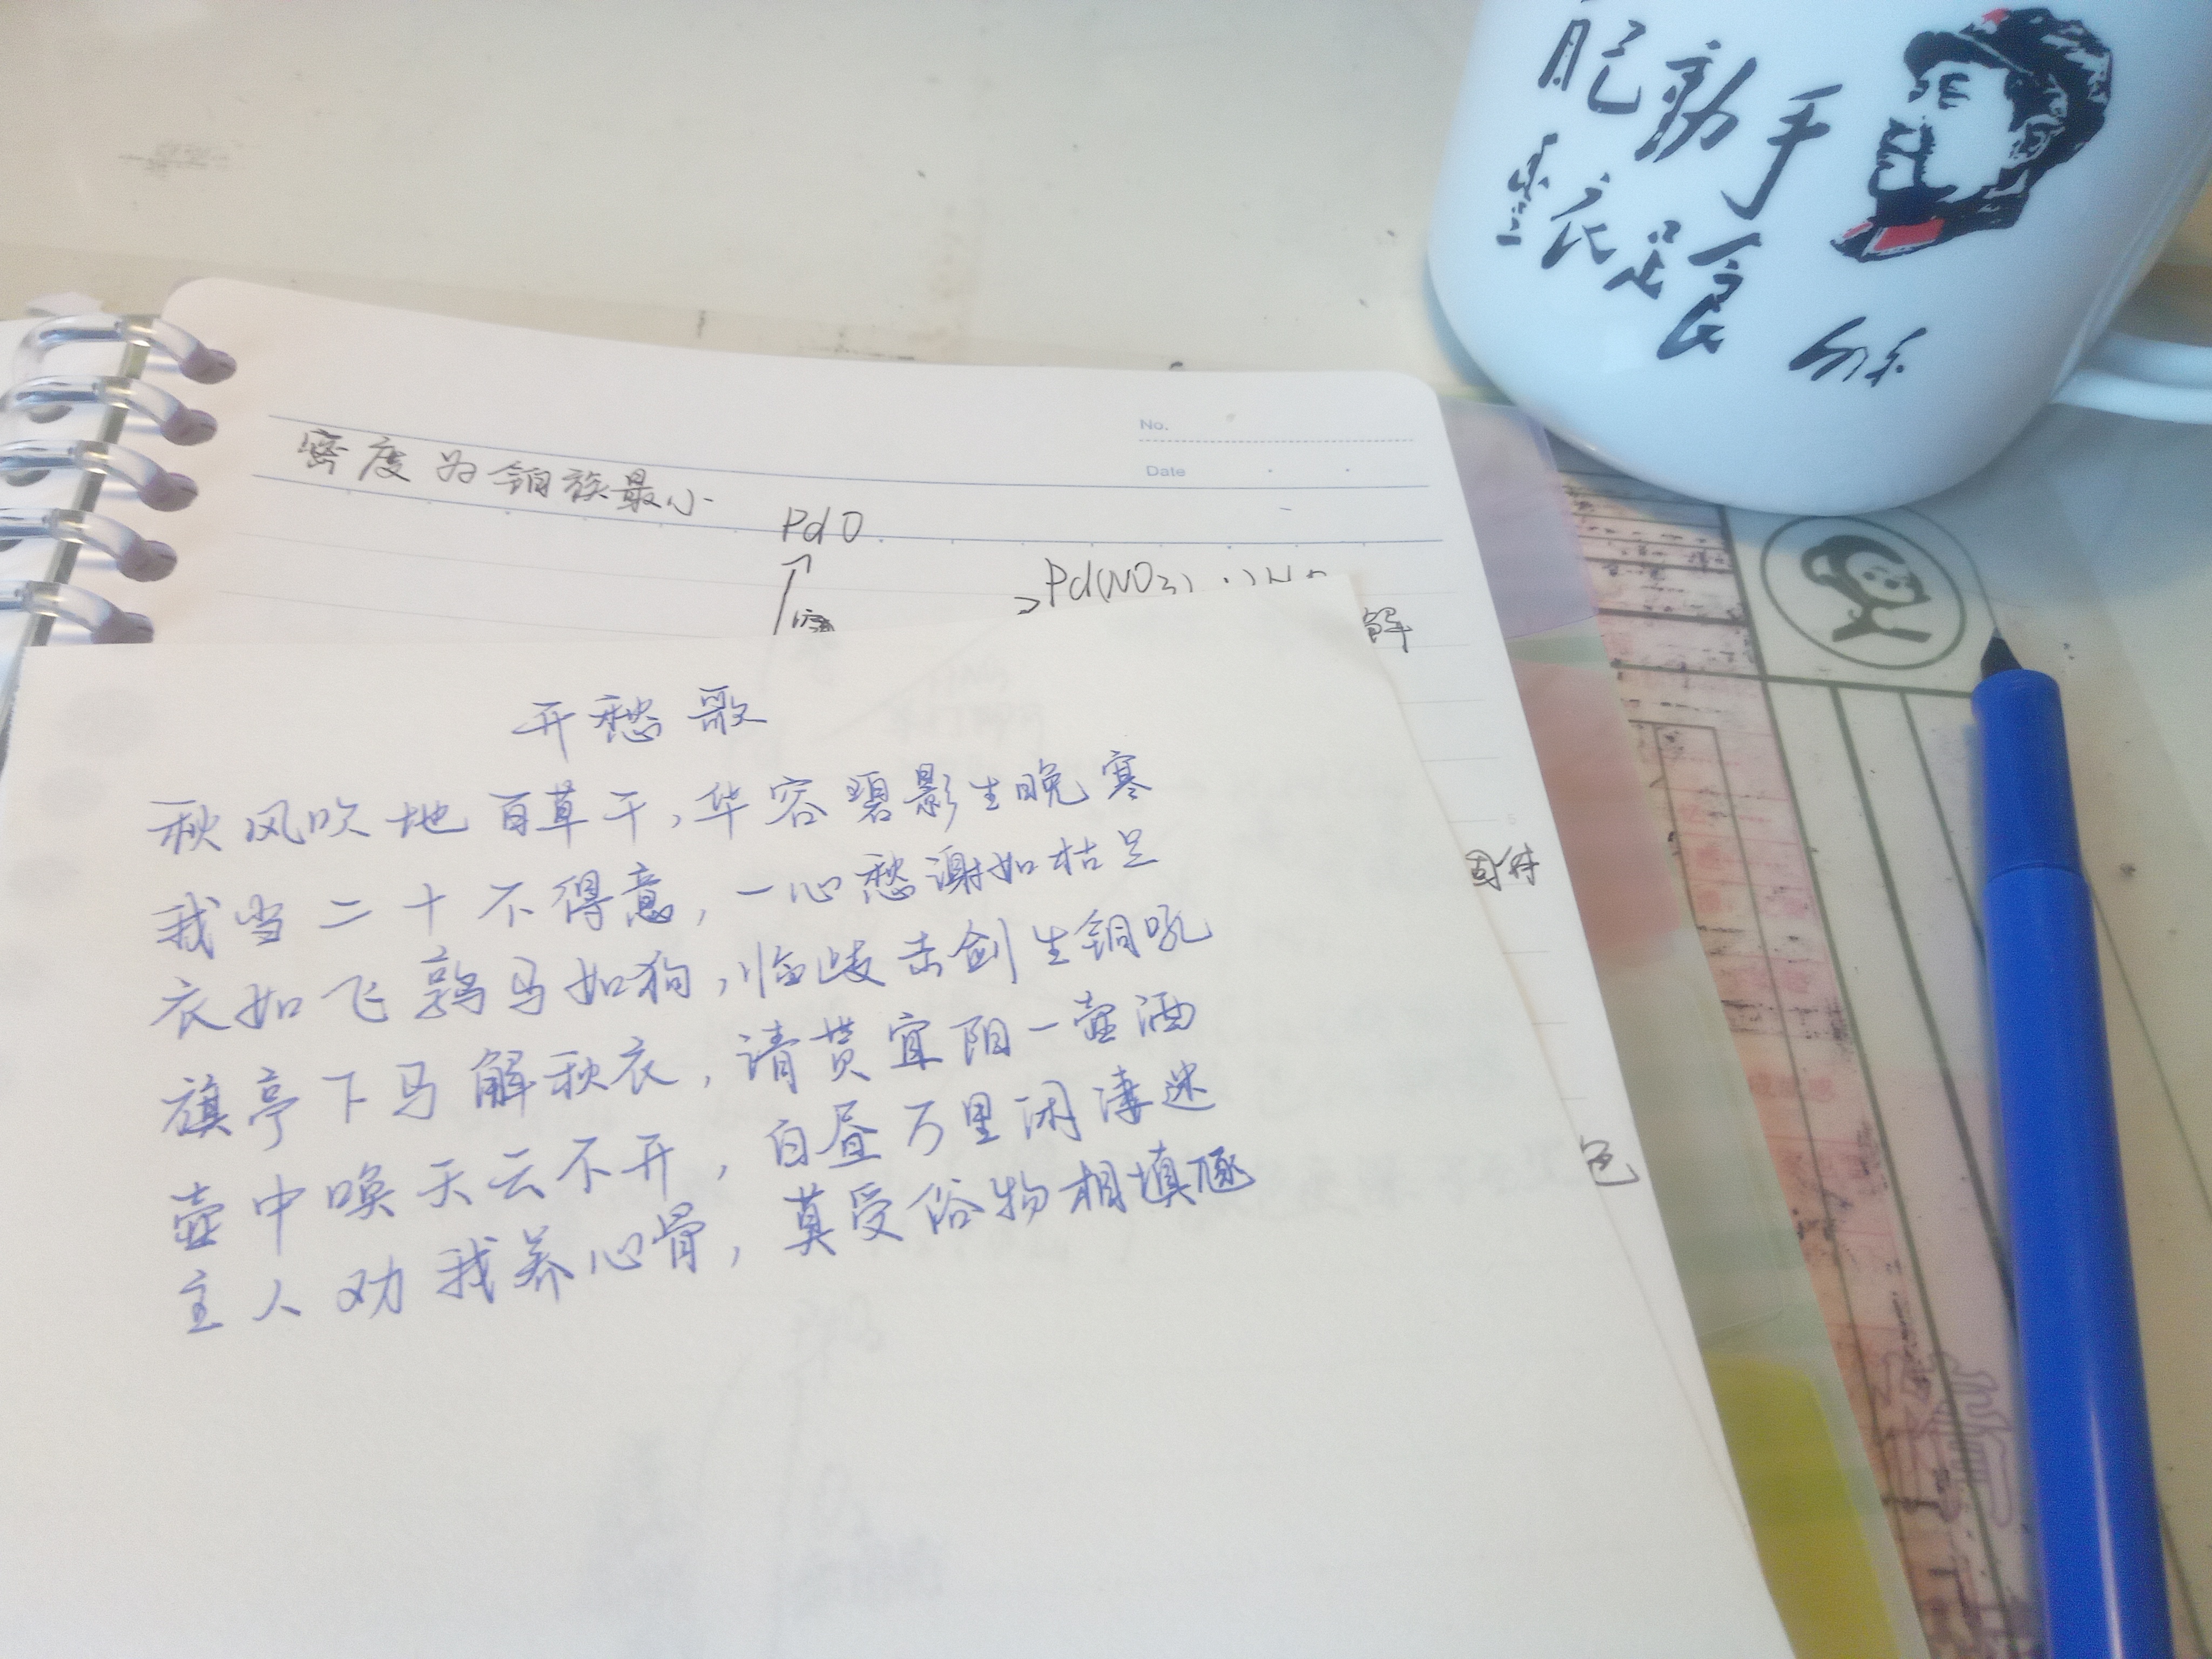 自己動手
豐衣足食
No.
Date
密度为铂族最小
PdO
Pd(NO3)
解
开愁歌
秋风吹地百草干,华容碧影生晚寒
我当二十不得意,一心愁谢如枯兰
固体
衣如飞鹑马如狗,临歧击剑生铜吼
旗亭下马解秋衣,请贳宜阳一壶酒
壶中唤天云不开,白昼万里闲凄迷
色
主人劝我养心骨,莫受俗物相填豗